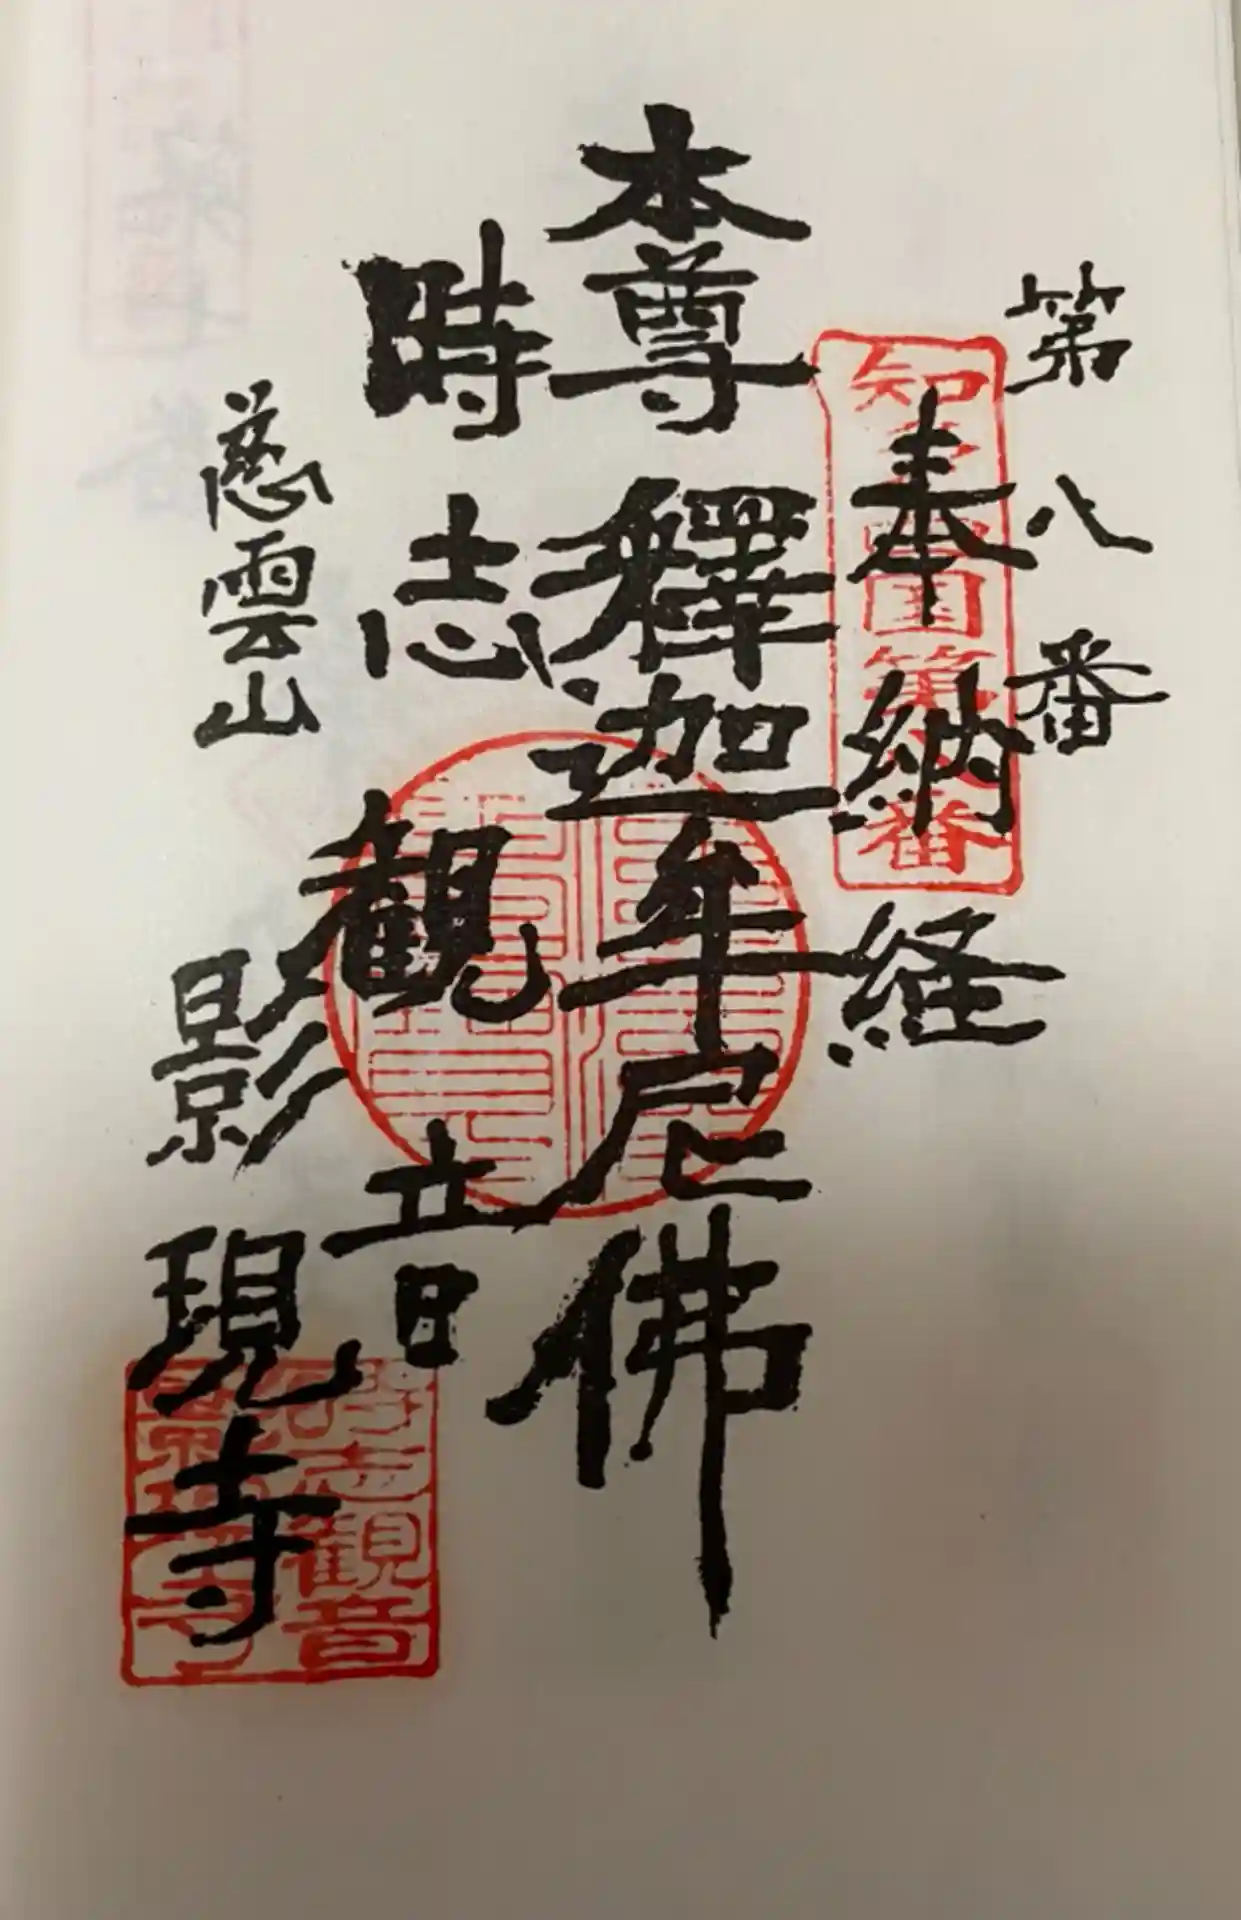 第八番
奉納経
本尊釋迦牟尼佛
時志觀音
慈雲山
影現寺
知多四国第八番
時志観音
影現寺